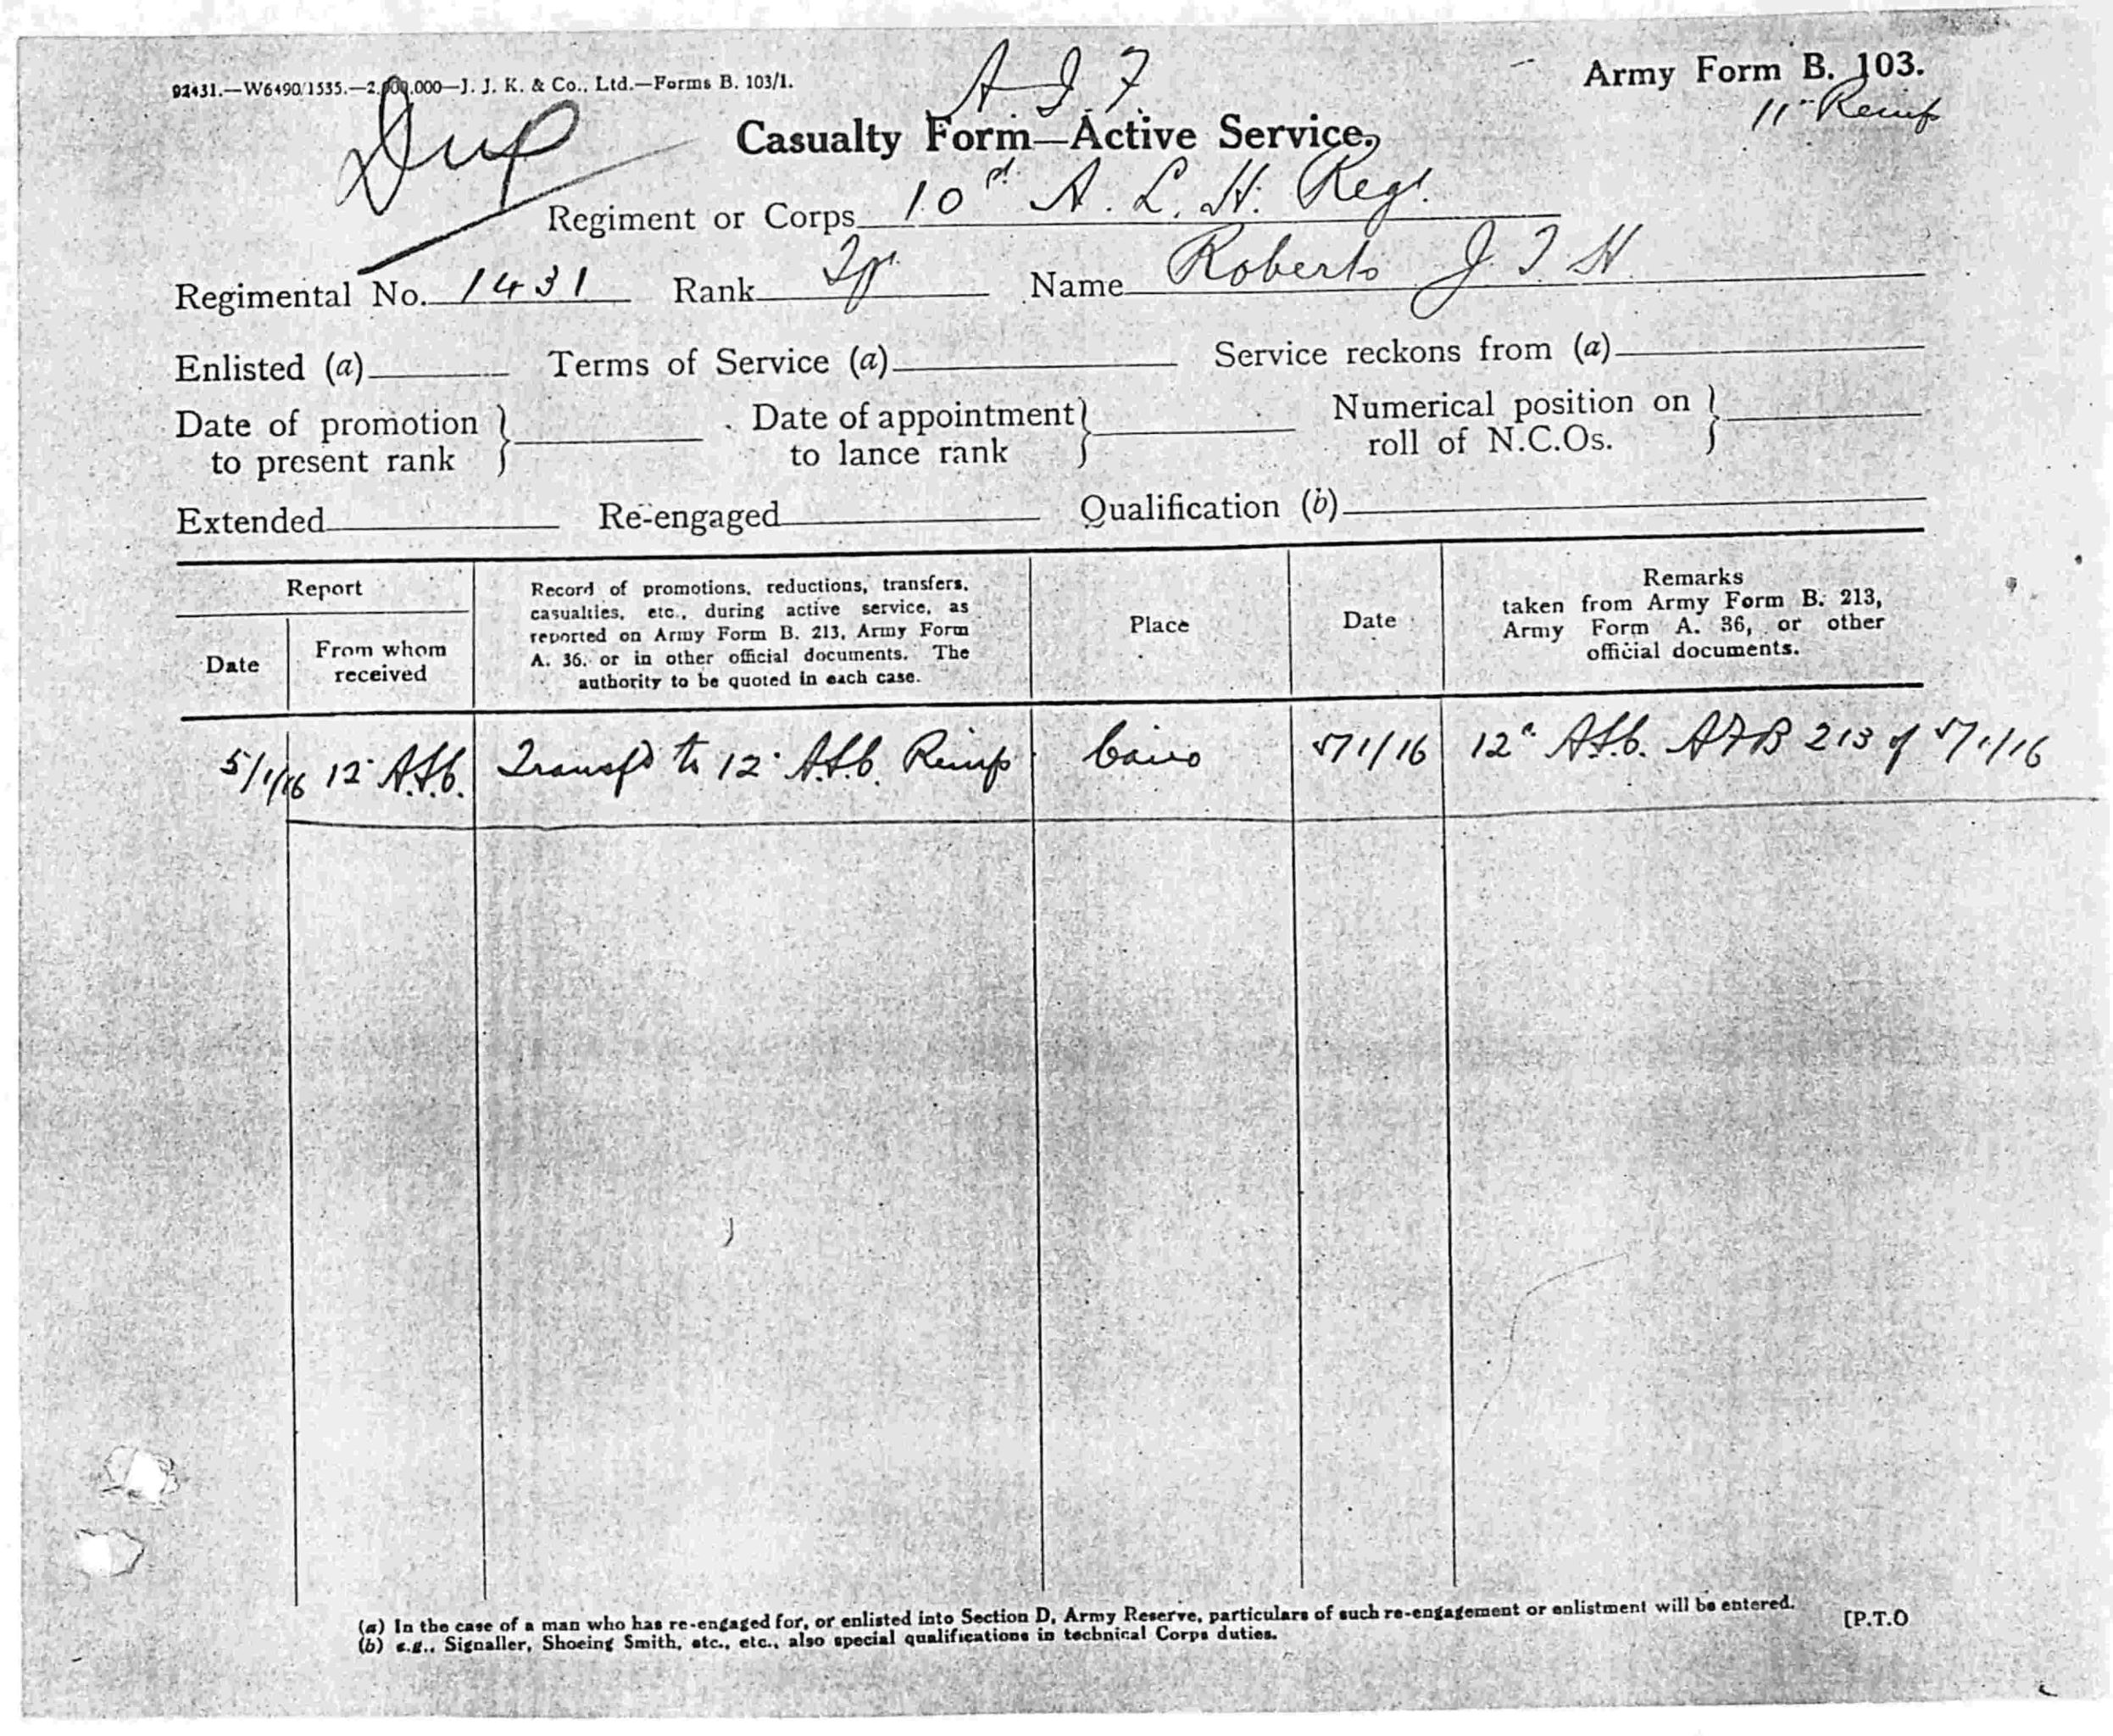 92431.—W6490/1535.—2,000,000—J. J. K. & Co., Ltd.—Forms B. 103/1.
A.I.F.
Army Form B. 103.
11" Reinf
Dup
Casualty Form—Active Service.
Regiment or Corps 10 A. L. H. Regt.
Regimental No. 1431 Rank Tpr Name Roberts J. T. H.
Enlisted (a) Terms of Service (a) Service reckons from (a)
Date of promotion to present rank } Date of appointment to lance rank } Numerical position on roll of N.C.Os. }
Extended Re-engaged Qualification (b)
Report
Date
From whom received
Record of promotions, reductions, transfers,
casualties, etc., during active service, as
reported on Army Form B. 213, Army Form
A. 36, or in other official documents. The
authority to be quoted in each case.
Place
Date
Remarks
taken from Army Form B. 213,
Army Form A. 36, or other
official documents.
5/1/16 12" Transfd to 12" Reinf Cairo 5/1/16 12" AFB 213 of 5/1/16
(a) In the case of a man who has re-engaged for, or enlisted into Section D, Army Reserve, particulars of such re-engagement or enlistment will be entered.
(b) e.g., Signaller, Shoeing Smith, etc., etc., also special qualifications in technical Corps duties.
[P.T.O